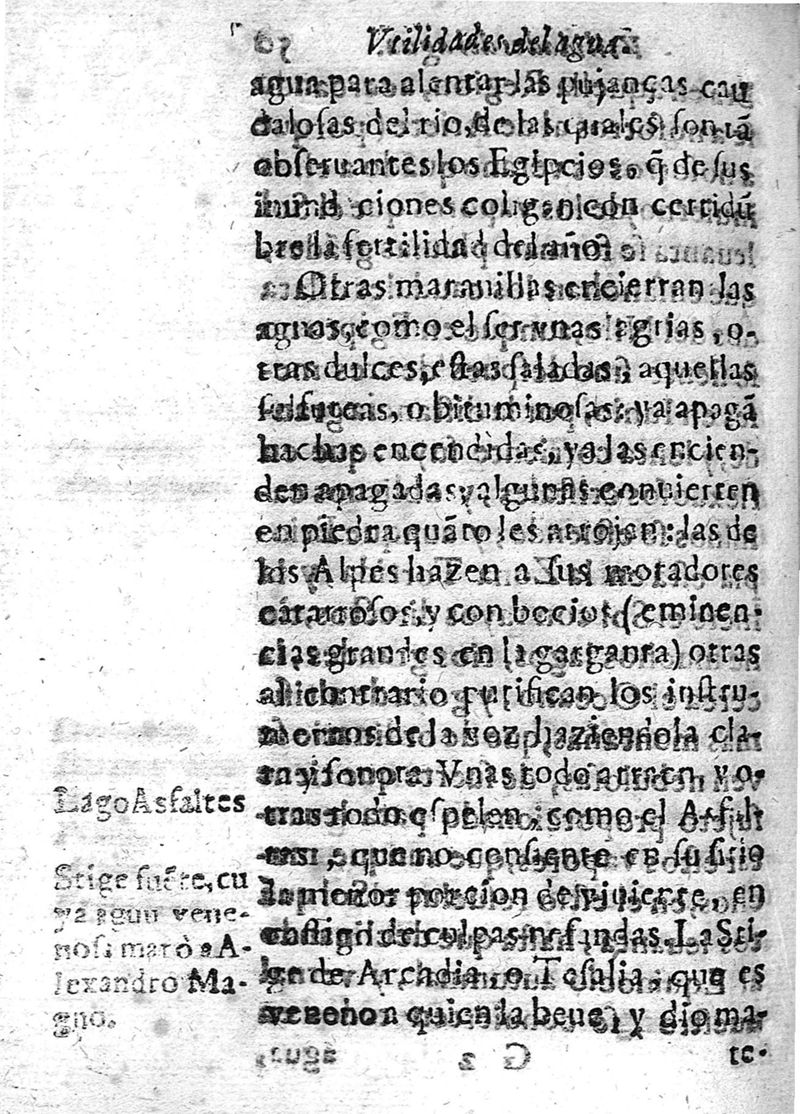 Vtilidades del agua
agua para alentar las pujanças cau
dalosas del rio, de las quales son tã
obseruantes los Egipcios, q̃ de sus
inundaciones coligen con certidũ
bre la fertilidad del año.
Otras marauillas encierran las
aguas, como el ser vnas agrias, o-
tras dulces, estas saladas, aquellas
sulfureas, o bituminosas: ya apagã
hachas encendidas, ya las encien-
den apagadas, y algunas conuierten
en piedra quãto les arrojan: las de
los Alpes hazen a sus moradores
catarrosos, y con bocios (eminen-
cias grandes en la garganta) otras
al contrario purifican los instru-
mentos de la voz, haziendola cla-
ra y sonora. Vnas todo atraen, y o-
tras todo espelen, como el Asfal-
tes, que no consiente en su sitio
la menor porcion de viuiente, en
castigo de culpas nefandas. La Sti-
ge de Arcadia, o Tesalia, que es
veneno a quien la beue, y dio ma-
te-
Lago Asfaltes
Stige fuẽte, cu
ya agua vene-
nosa matò a A-
lexandro Ma-
gno.